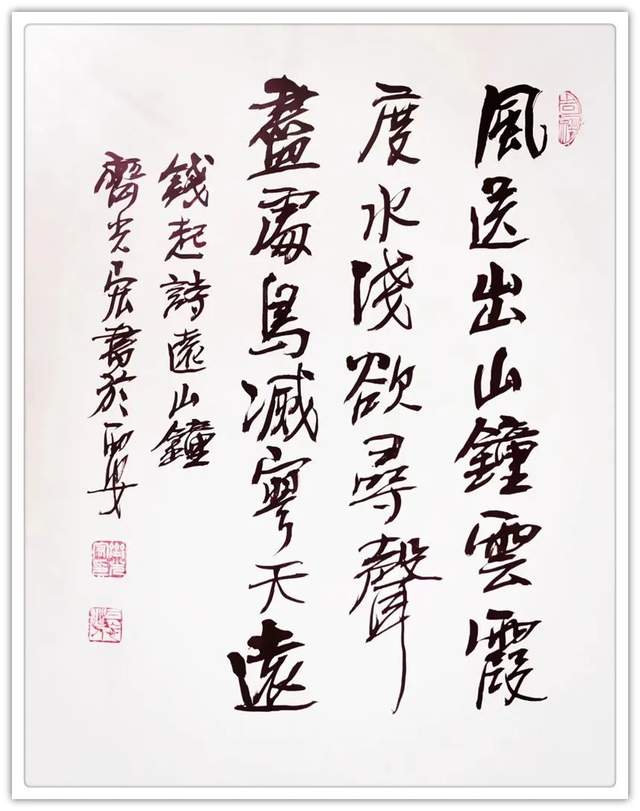 風送出山鐘雲霞
度水淺欲尋聲
盡處鳥滅寥天遠
錢起詩遠山鐘
光宏書於